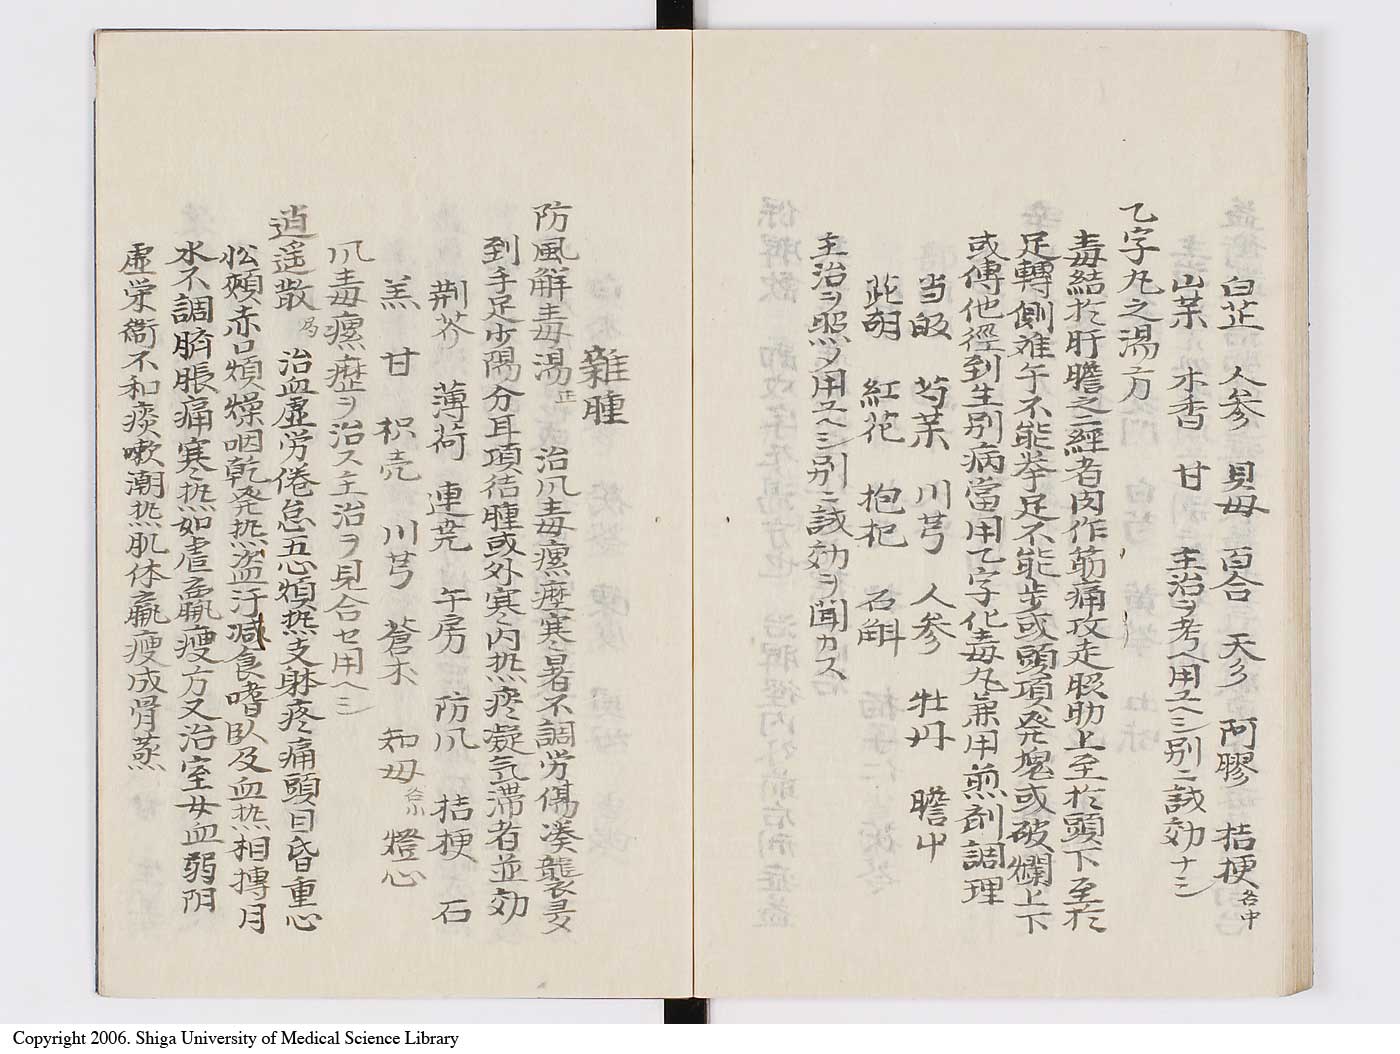 白芷 人参 貝母 百合 天多 阿膠 桔梗各中
山茱 木香 甘 主治ヲ考ヘ用ユヘシ別ニ誠効ナシ
乙字丸之湯方
毒結於肝瞻之二經者肉作筋痛攻走脇肋上至於頭下至於
足轉側难午不能挙足不能步或頭項発塊或破爛上下
或傳他徑到生別病當用乙字化毒丸兼用煎剤調理
当皈 芍茱 川芎 人参 牡丹 瞻中
此胡 紅花 抱杞 石斛
主治ヲ照ヲ用ユヘシ別ニ誠効ヲ聞カス
雜腫
防風解毒湯正 治爪毒瘰癧寒暑不調労傷湊襲多
到手足少陽分耳項结腫或外寒内热痰凝气滞者並効
荆芥 薄荷 連壳 午房 防爪 桔梗 石
羔 甘 枳壳 川芎 蒼朮 知母 燈心
爪毒瘰癧ヲ治ス主治ヲ見合セ用ヘシ
逍遥散 治血虚労倦怠五心煩热支躰疼痛頭目昏重心
忪頰赤口煩燥咽乾発热盗汗减食嗜臥及血热相搏月
水不調臍脹痛寒热如虐羸瘦方又治室女血弱阴
虚栄衛不和痰嗽潮热肌体羸瘦成骨蒸